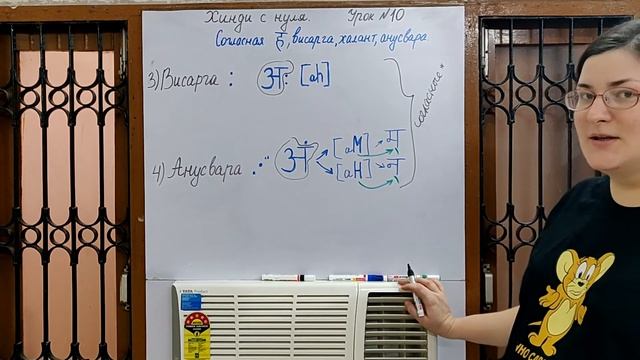 Хинди с нуля. Урок №10
Согласная ह, висарга, халант, анусвара.
3) Висарга : अः [ah]
4) Анусвара . अं [аМ] → म्
[аН] → न्
согласные
TATA